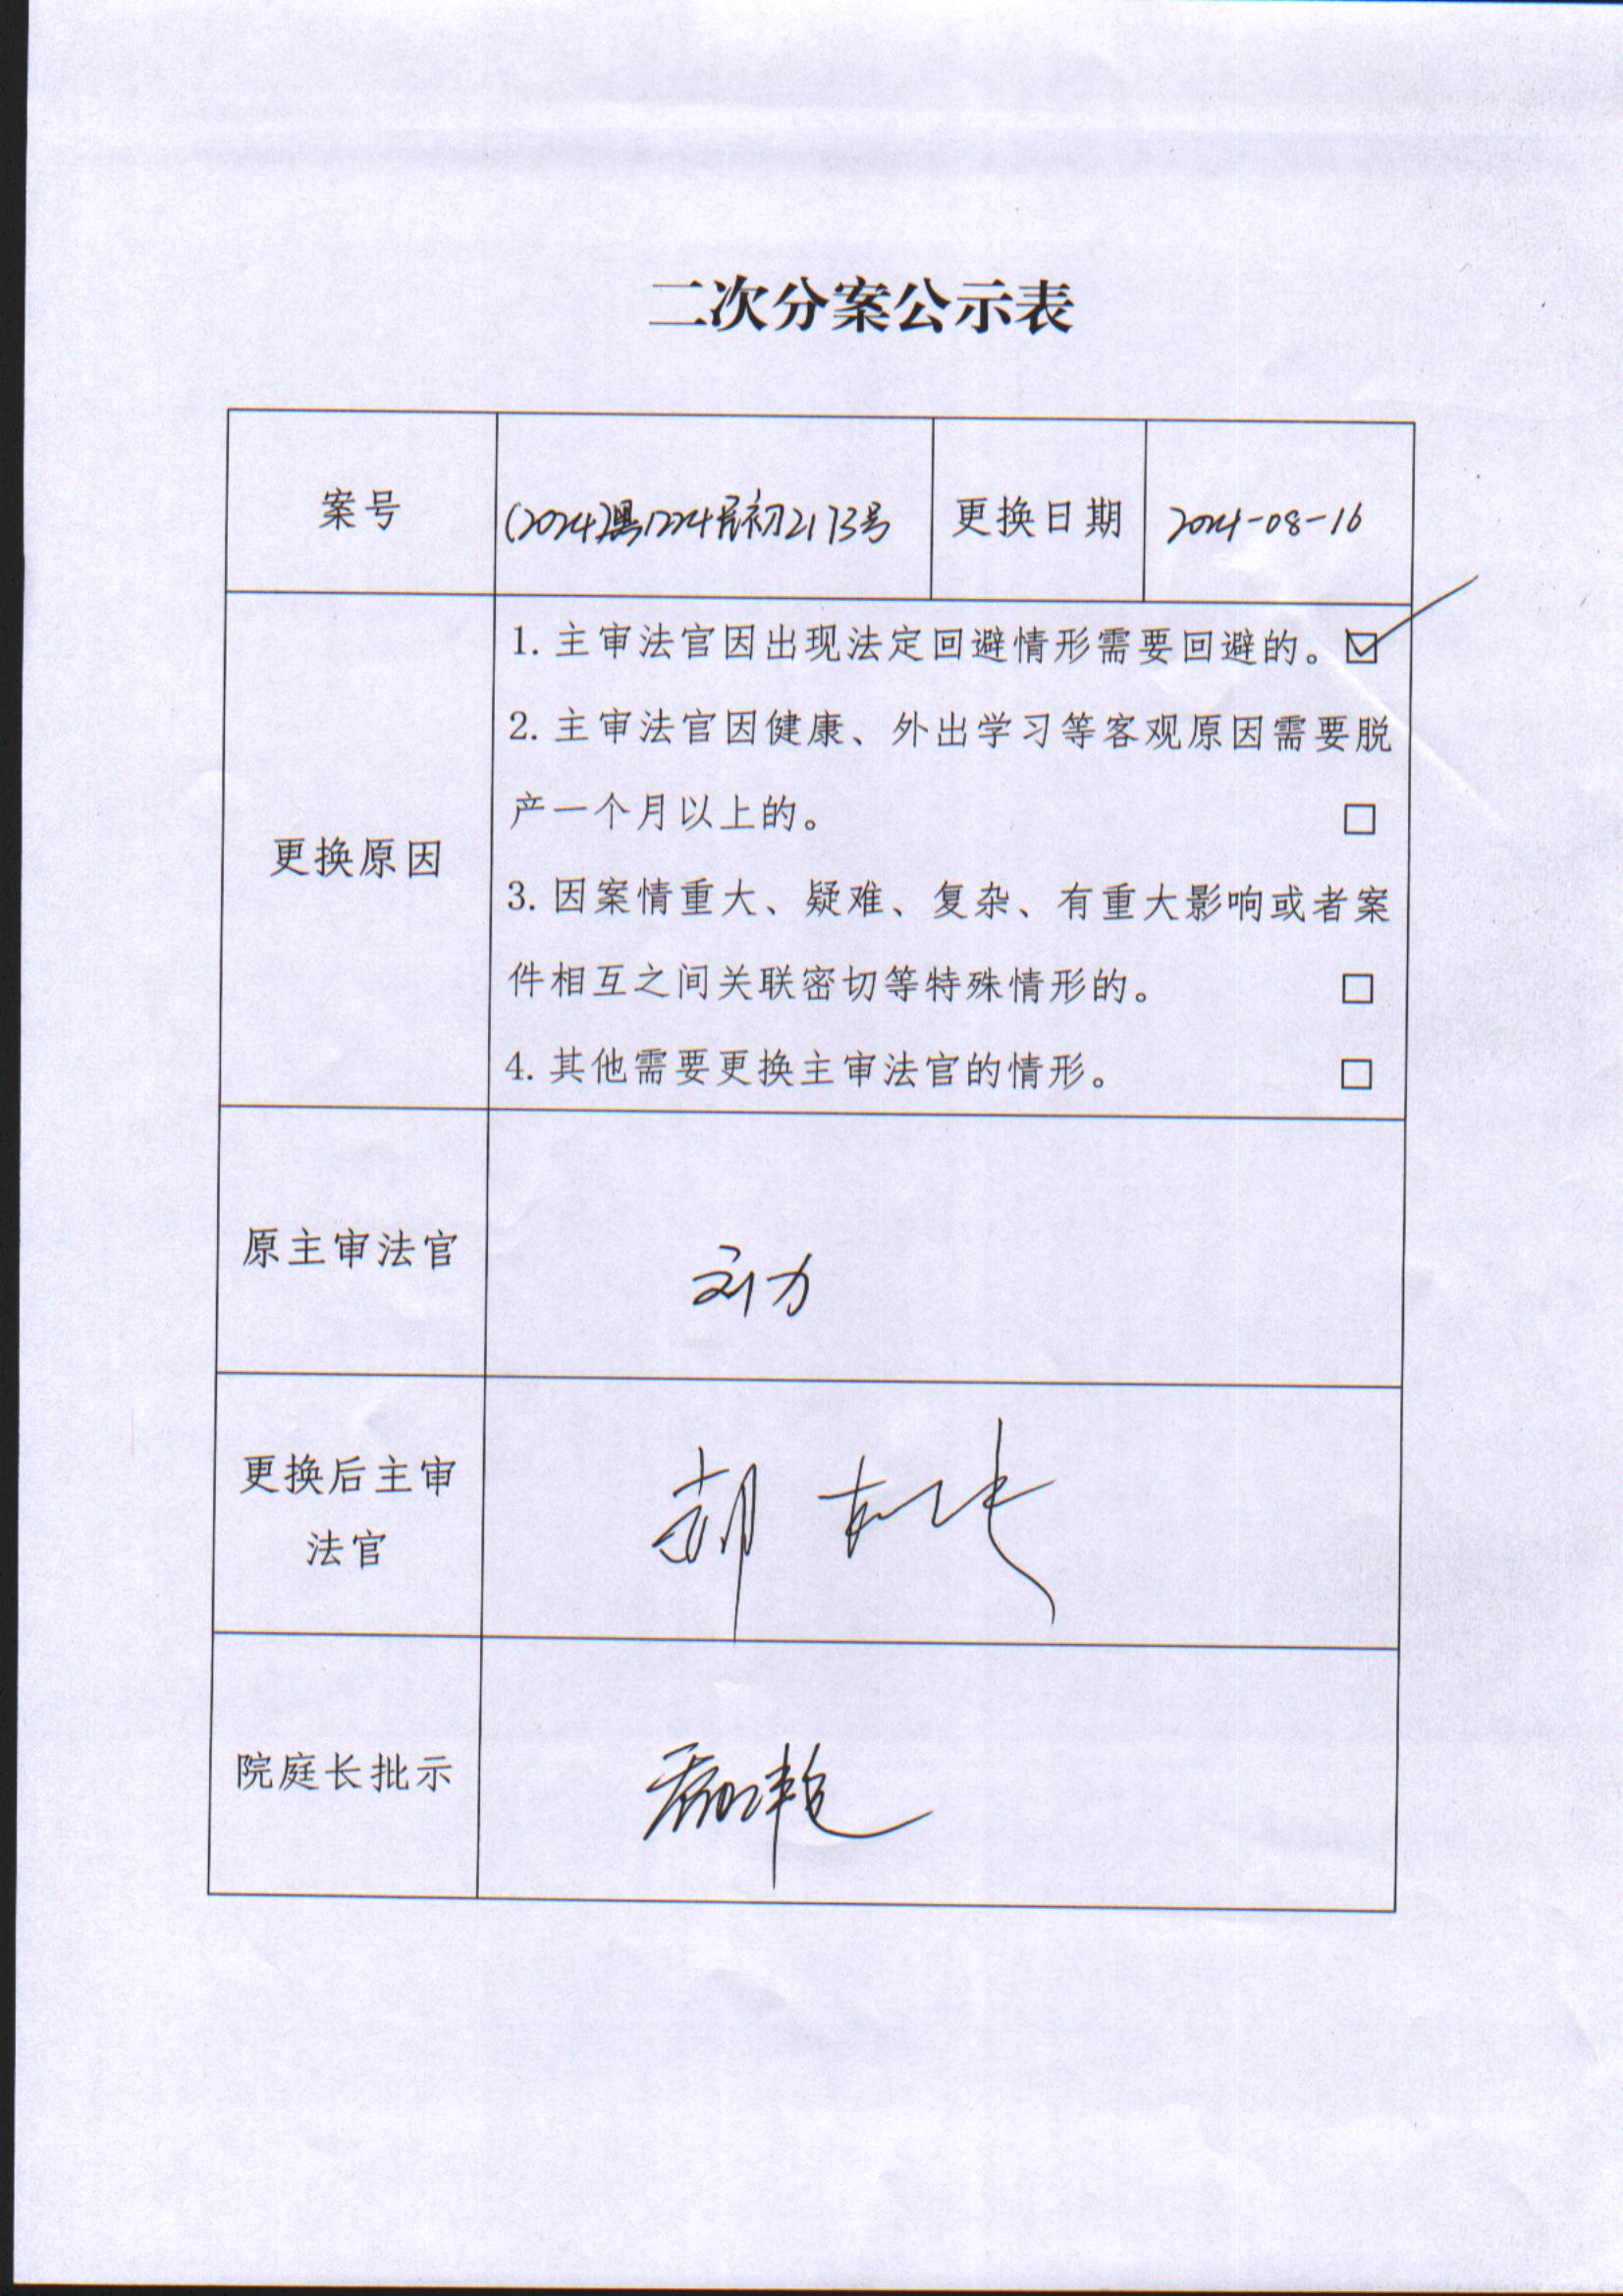 二次分案公示表
案号
(2024)黑1224民初2173号
更换日期
2024-08-16
更换原因
1. 主审法官因出现法定回避情形需要回避的。☑
2. 主审法官因健康、外出学习等客观原因需要脱
产一个月以上的。 □
3. 因案情重大、疑难、复杂、有重大影响或者案
件相互之间关联密切等特殊情形的。 □
4. 其他需要更换主审法官的情形。 □
原主审法官
刘力
更换后主审
法官
院庭长批示